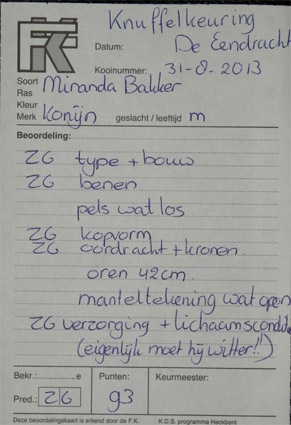 Knuffelkeuring
FK
Datum: De Eendracht
Kooinummer: 31-8-2013
Soort
Ras Miranda Bakker
Kleur
Merk Konijn geslacht / leeftijd m
Beoordeling:
ZG type + bouw
ZG benen
pels wat los
ZG kopvorm
ZG oordracht + kronen
oren 42cm
manteltekening wat open
ZG verzorging + lichaamsconditi
(eigenlijk moet hij witter!!)
Bekr.:................e Punten: Keurmeester:
Pred.: ZG 93
Deze beoordelingskaart is erkend door de F.K. K.D.S. programma Heckbent